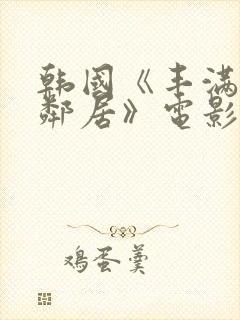 韩国《丰满
邻居》电影
鸡蛋羹